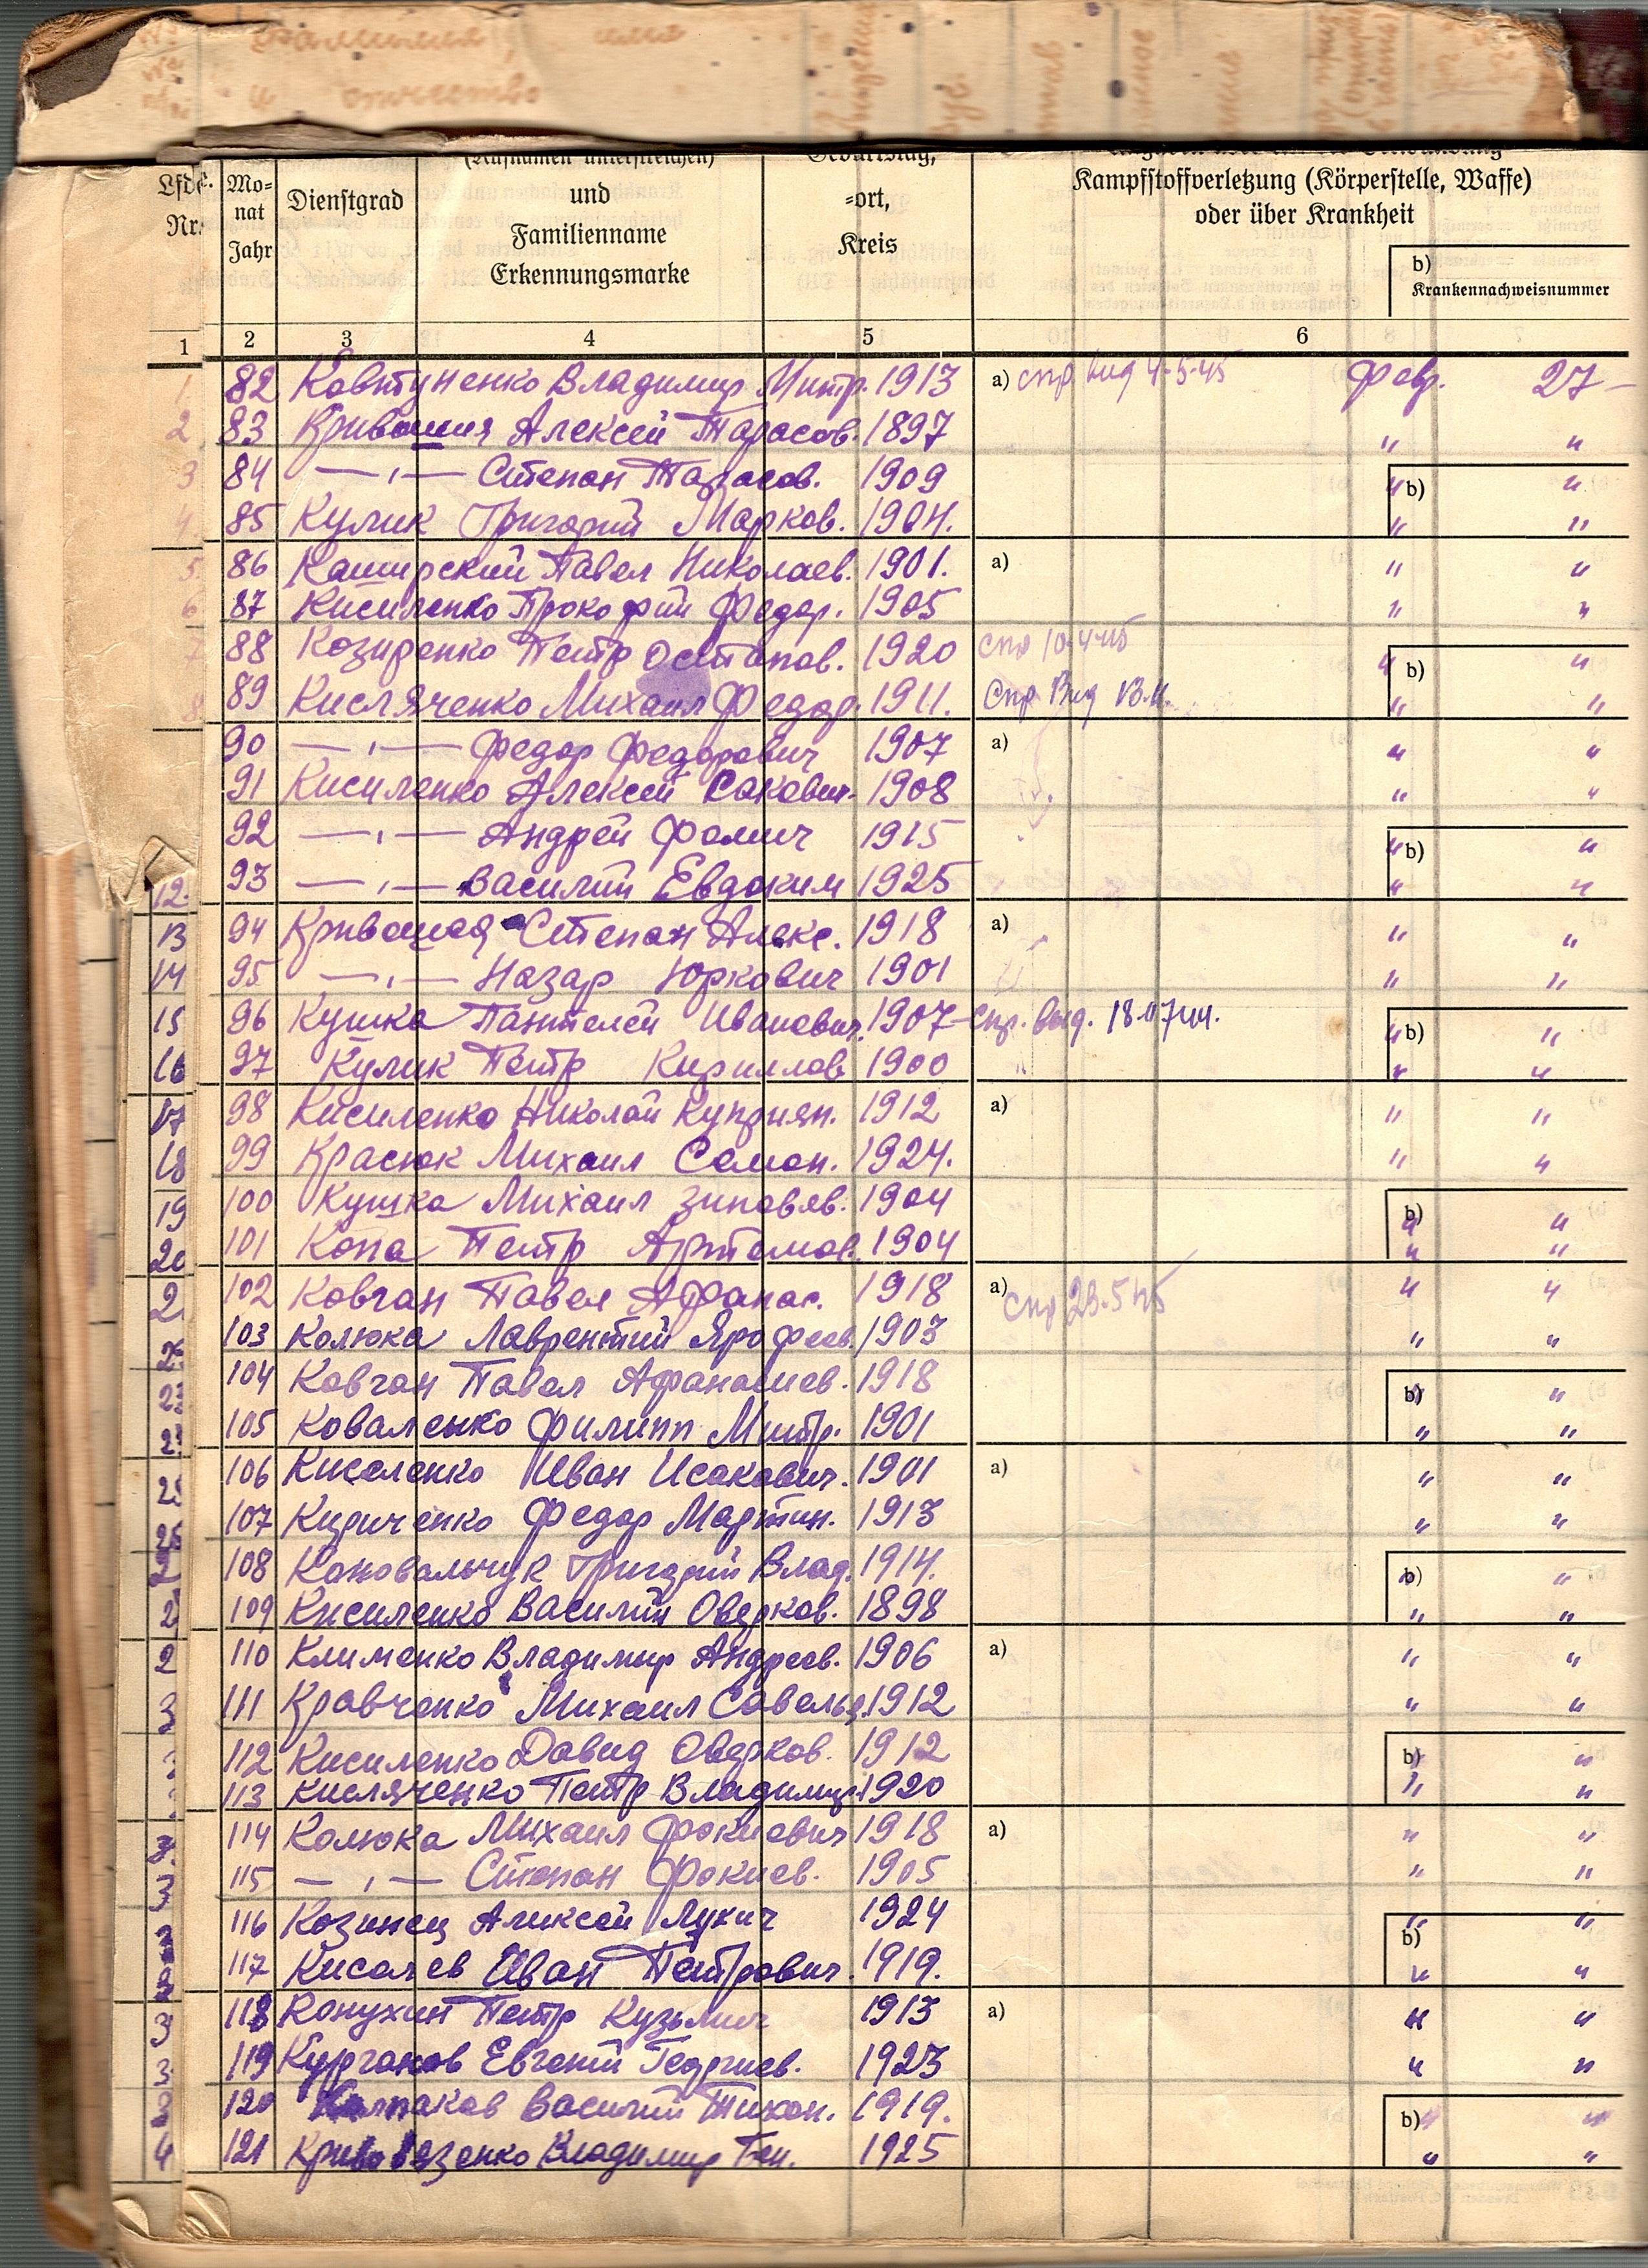 Фамилия, имя
и отчество
(Rufnamen unterstreichen)
Lfd. Nr.
Mo=nat Jahr
Dienstgrad
und
Familienname
Erkennungsmarke
Geburtstag,
=ort,
Kreis
Kampfstoffverletzung (Körperstelle, Waffe)
oder über Krankheit
b)
Krankennachweisnummer
1 2 3 4 5 6
82 Ковтуненко Владимир Митр. 1913 a) спр. вид 4-5-45 февр. 27 –
83 Кривошия Алексей Тарасов. 1897 " "
84 — " — Степан Тарасов. 1909 " b) "
85 Кулик Григорий Марков. 1904. " "
86 Каширский Павел Николаев. 1901. a) " "
87 Кисиленко Прокофий Федор. 1905 " "
88 Козиренко Петр Остапов. 1920 спр 10.4.45 " b) "
89 Кисляченко Михаил Федор. 1911. Спр Вид " "
90 — " — Федор Федорович 1907 a) " "
91 Кисиленко Алексей Сакович. 1908 " "
92 — " — Андрей Фомич 1915 " b) "
12. 93 — " — Василий Евдоким 1925 " "
13 94 Кривошея Степан Алекс. 1918 a) " "
14 95 — " — Назар Юркович 1901 " "
15 96 Кушка Пантелей Иванович. 1907 – спр. выд. " b) "
16 97 Кулик Петр Кириллов 1900 " "
17 98 Кисиленко Николай Куприян. 1912 a) " "
18 99 Красюк Михаил Семон. 1924. " "
19 100 Кушка Михаил Зиновьев. 1904 b) " "
20 101 Копа Петр Артемов. 1904 " "
102 Ковган Павел Афанас. 1918 a) спр 23.5 45 " "
103 Колюка Лаврентий Ярофеев. 1903 " "
104 Ковган Павел Афанасиев. 1918 b) " "
105 Коваленко Филипп Митр. 1901 " "
106 Киселенко Иван Исакович. 1901 a) " "
107 Кириченко Федор Мартин. 1913 " "
108 Коновальчук Григорий Влад. 1914. b) " "
109 Кисиленко Василий Оверков. 1898 " "
110 Клименко Владимир Андреев. 1906 a) " "
111 Кравченко Михаил Савельев. 1912 " "
112 Кисиленко Давид Оверков. 1912 b) " "
113 Кисляченко Петр Владимир. 1920 " "
114 Колюка Михаил Фокиевич 1918 a) " "
115 — " — Степан Фокиев. 1905 " "
116 Козинец Алексей Лукич 1924 b) " "
117 Киселев Иван Петрович. 1919. " "
118 Конухин Петр Кузьмич 1913 a) " "
119 Курганов Евгений Георгиев. 1923 " "
120 Колпаков Василий Тихон. 1919. b) " "
121 Владимир 1925 " "